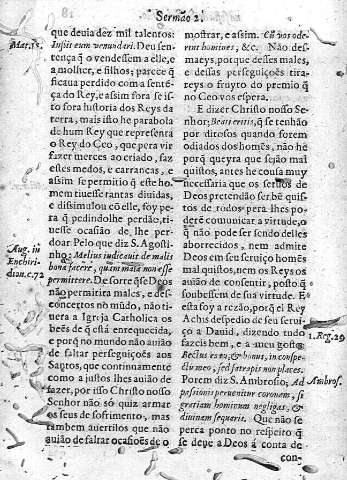 Sermão 2.
Mat. 18.
que deuia dez mil talentos:
Iussit eum venundari. Deu sen-
tença q̃ o vendessem a elle, e
a molher, e filhos; parece q̃
ficaua perdido com a sentẽ-
ça do Rey. e assim fora se is-
to fora historia dos Reys da
terra, mais isto he parabola
de hum Rey que representa
o Rey do Ceo, que pera vir
fazer merces ao criado, faz
esses medos, e carrancas, e
assim se permitio q̃ este ho-
mem tiuesse tantas diuidas,
e dissimulou cõ elle, foy pe-
ra q̃ pedindolhe perdão, ti-
uesse ocasião de lhe per-
doar. Pelo que diz S. Agosti-
nho: Melius iudicauit de malis
bona facere, quam mala non esse
permittere. De sorte que Deos
não permitira males, e des-
concertos no mũdo, não ti-
uera a Igreja Catholica os
beẽs de q̃ está enrequecida,
e porq̃ no mundo não auião
de faltar perseguições aos
Santos, que continuamente
como a justos lhes auião de
fazer, por isso Christo nosso
Senhor não só quiz armar
os seus de sofrimento, mas
tambem auertilos que não
auião de faltar ocasiões de o
Aug. in
Enchiri-
dian. c. 72
mostrar, e assim. Cũ vos ode-
rint homines, &c. Não des-
maeys, por que desses males,
e dessas perseguições tira-
reys o fruyto do premio q̃
no Ceo vos espera.
E dizer Christo nosso Se-
nhor; Beati eritis, q̃ se tenhão
por ditosos quando forem
odiados dos homẽs, não he
porq̃ queyra que sejão mal
quistos, antes he cousa muy
necessaria que os seruos de
Deos pretendão ser bẽ quis-
tos de todos pera lhes po-
derẽ comunicar a virtude, o
q̃ não pode ser sendo delles
aborrecidos, nem admite
Deos em seu seruiço homẽs
mal quistos, nem os Reys os
auião de consentir, posto q̃
soubessem de sua virtude. E
esta foy a rezão, porq̃ el Rey
Achis despedio de seu serui-
ço a Dauid, dizendo tudo
fazeis bem, e a meu gosto;
Rectus es tu, & bonus, in conspe-
ctu meo, sed satrapis non places.
Porem diz S. Ambrosio; Ad
passionis peruenitur coronam, si
gratiam hominum negligas, &
diuinam sequaris. Que não se
perca ponto no respeito q̃
se deue a Deos á conta de
con-
1. Reg. 29
Ambros.